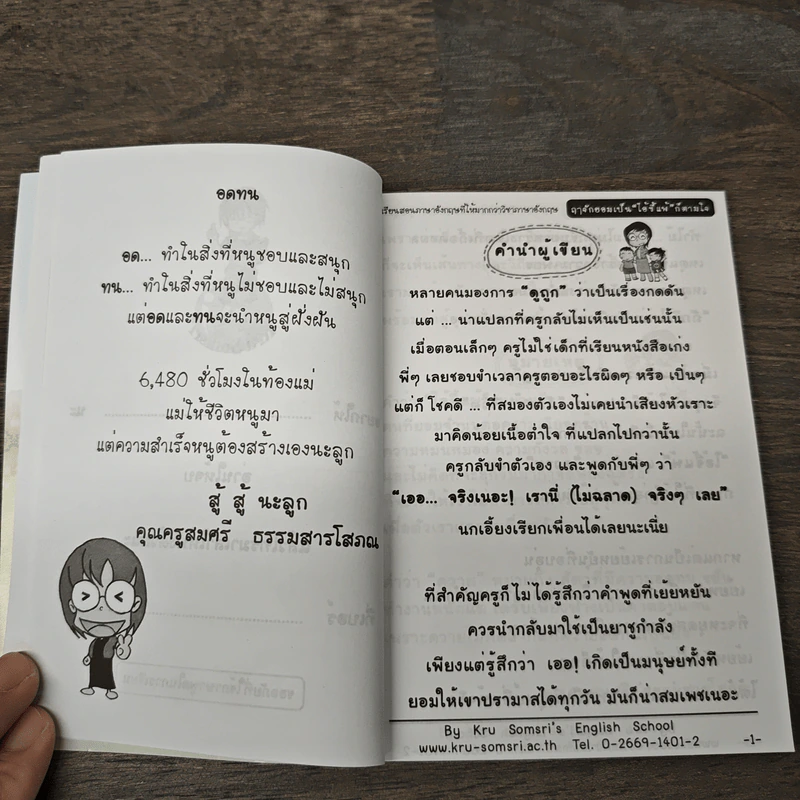 อดทน
อด... ทำในสิ่งที่หนูชอบและสนุก
ทน... ทำในสิ่งที่หนูไม่ชอบและไม่สนุก
แต่อดและทนจะนำหนูสู่ฝั่งฝัน
6,480 ชั่วโมงในท้องแม่
แม่ให้ชีวิตหนูมา
แต่ความสำเร็จหนูต้องสร้างเองนะลูก
สู้ สู้ นะลูก
คุณครูสมศรี ธรรมสารโสภณ
เรียนสอนภาษาอังกฤษที่ให้มากกว่าวิชาภาษาอังกฤษ
ฤๅจักยอมเป็น"ไอ้ขี้แพ้"ก็ตามใจ
คำนำผู้เขียน
หลายคนมองการ "ดูถูก" ว่าเป็นเรื่องกดดัน
แต่ ... น่าแปลกที่ครูกลับไม่เห็นเป็นเช่นนั้น
เมื่อตอนเล็กๆ ครูไม่ใช่เด็กที่เรียนหนังสือเก่ง
พี่ๆ เลยชอบขำเวลาครูตอบอะไรผิดๆ หรือ เปิ่นๆ
แต่ก็ โชคดี ... ที่สมองตัวเองไม่เคยนำเสียงหัวเราะ
มาคิดน้อยเนื้อต่ำใจ ที่แปลกไปกว่านั้น
ครูกลับขำตัวเอง และพูดกับพี่ๆ ว่า
"เออ... จริงเนอะ! เรานี่ (ไม่ฉลาด) จริงๆ เลย"
นกเอี้ยงเรียกเพื่อนได้เลยนะเนี่ย
ที่สำคัญครูก็ไม่ได้รู้สึกว่าคำพูดที่เย้ยหยัน
ควรนำกลับมาใช้เป็นยาชูกำลัง
เพียงแต่รู้สึกว่า เออ! เกิดเป็นมนุษย์ทั้งที
ยอมให้เขาปรามาสได้ทุกวัน มันก็น่าสมเพชเนอะ
By Kru Somsri's English School
www.kru-somsri.ac.th Tel. 0-2669-1401-2
-1-